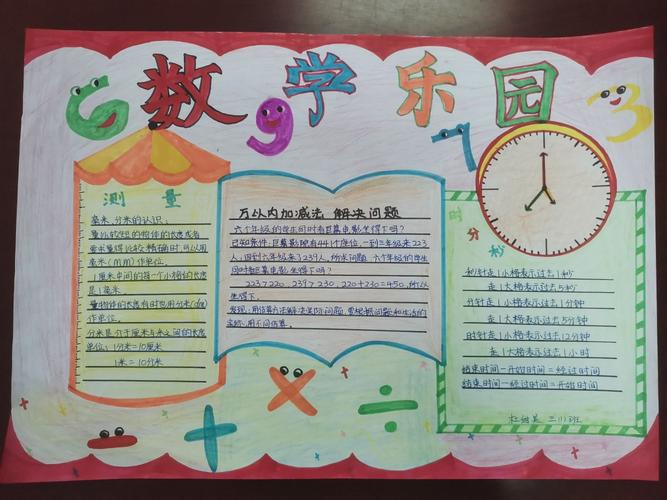 数学乐园
6
9
7
3
测 量
毫米、分米的认识:
量比较短的物体的长度或者
要求量得比较精确时,可以用
毫米(mm)作单位。
1厘米中间的每一个小格的长度
是1毫米。
量物体的长度有时也用分米(dm)
作单位。
分米是介于厘米与米之间的长度
单位:1分米=10厘米
1米=10分米
万以内加减法 解决问题
六个年级的学生同时看巨幕电影坐得下吗?
已知条件:巨幕影院有441个座位,一到三年级来223
人,四到六年级来了239人,所求问题:六个年级的学生
同时看巨幕电影坐得下吗?
223>220,239>230,220+230=450,所以
坐不下。
发现:用估算方法解决实际问题,要根据问题和生活的
实际,用不同估算。
时 分 秒
秒针走1小格表示过去1秒
走1大格表示过去5秒
分针走1小格表示过去1分钟
走1大格表示过去5分钟
时针走1小格表示过去12分钟
走1大格表示过去1小时
结束时间-开始时间=经过时间
结束时间-经过时间=开始时间
三(1)班